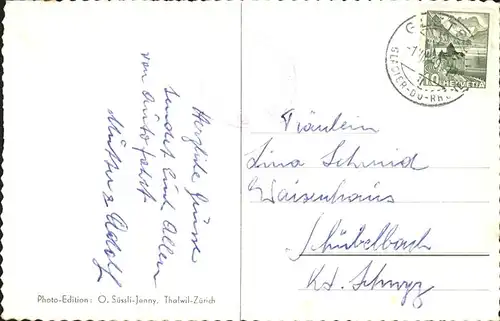 Herzliche Grüsse
sendet Euch Allen
von Autofahrt
Mutter & Adolf
Photo-Edition: O. Süssli-Jenny, Thalwil-Zürich
GLACIER-DU-RH
10 HELVETIA
Fräulein
Lina Schmid
Waisenhaus
Schübelbach
Kt. Schwyz